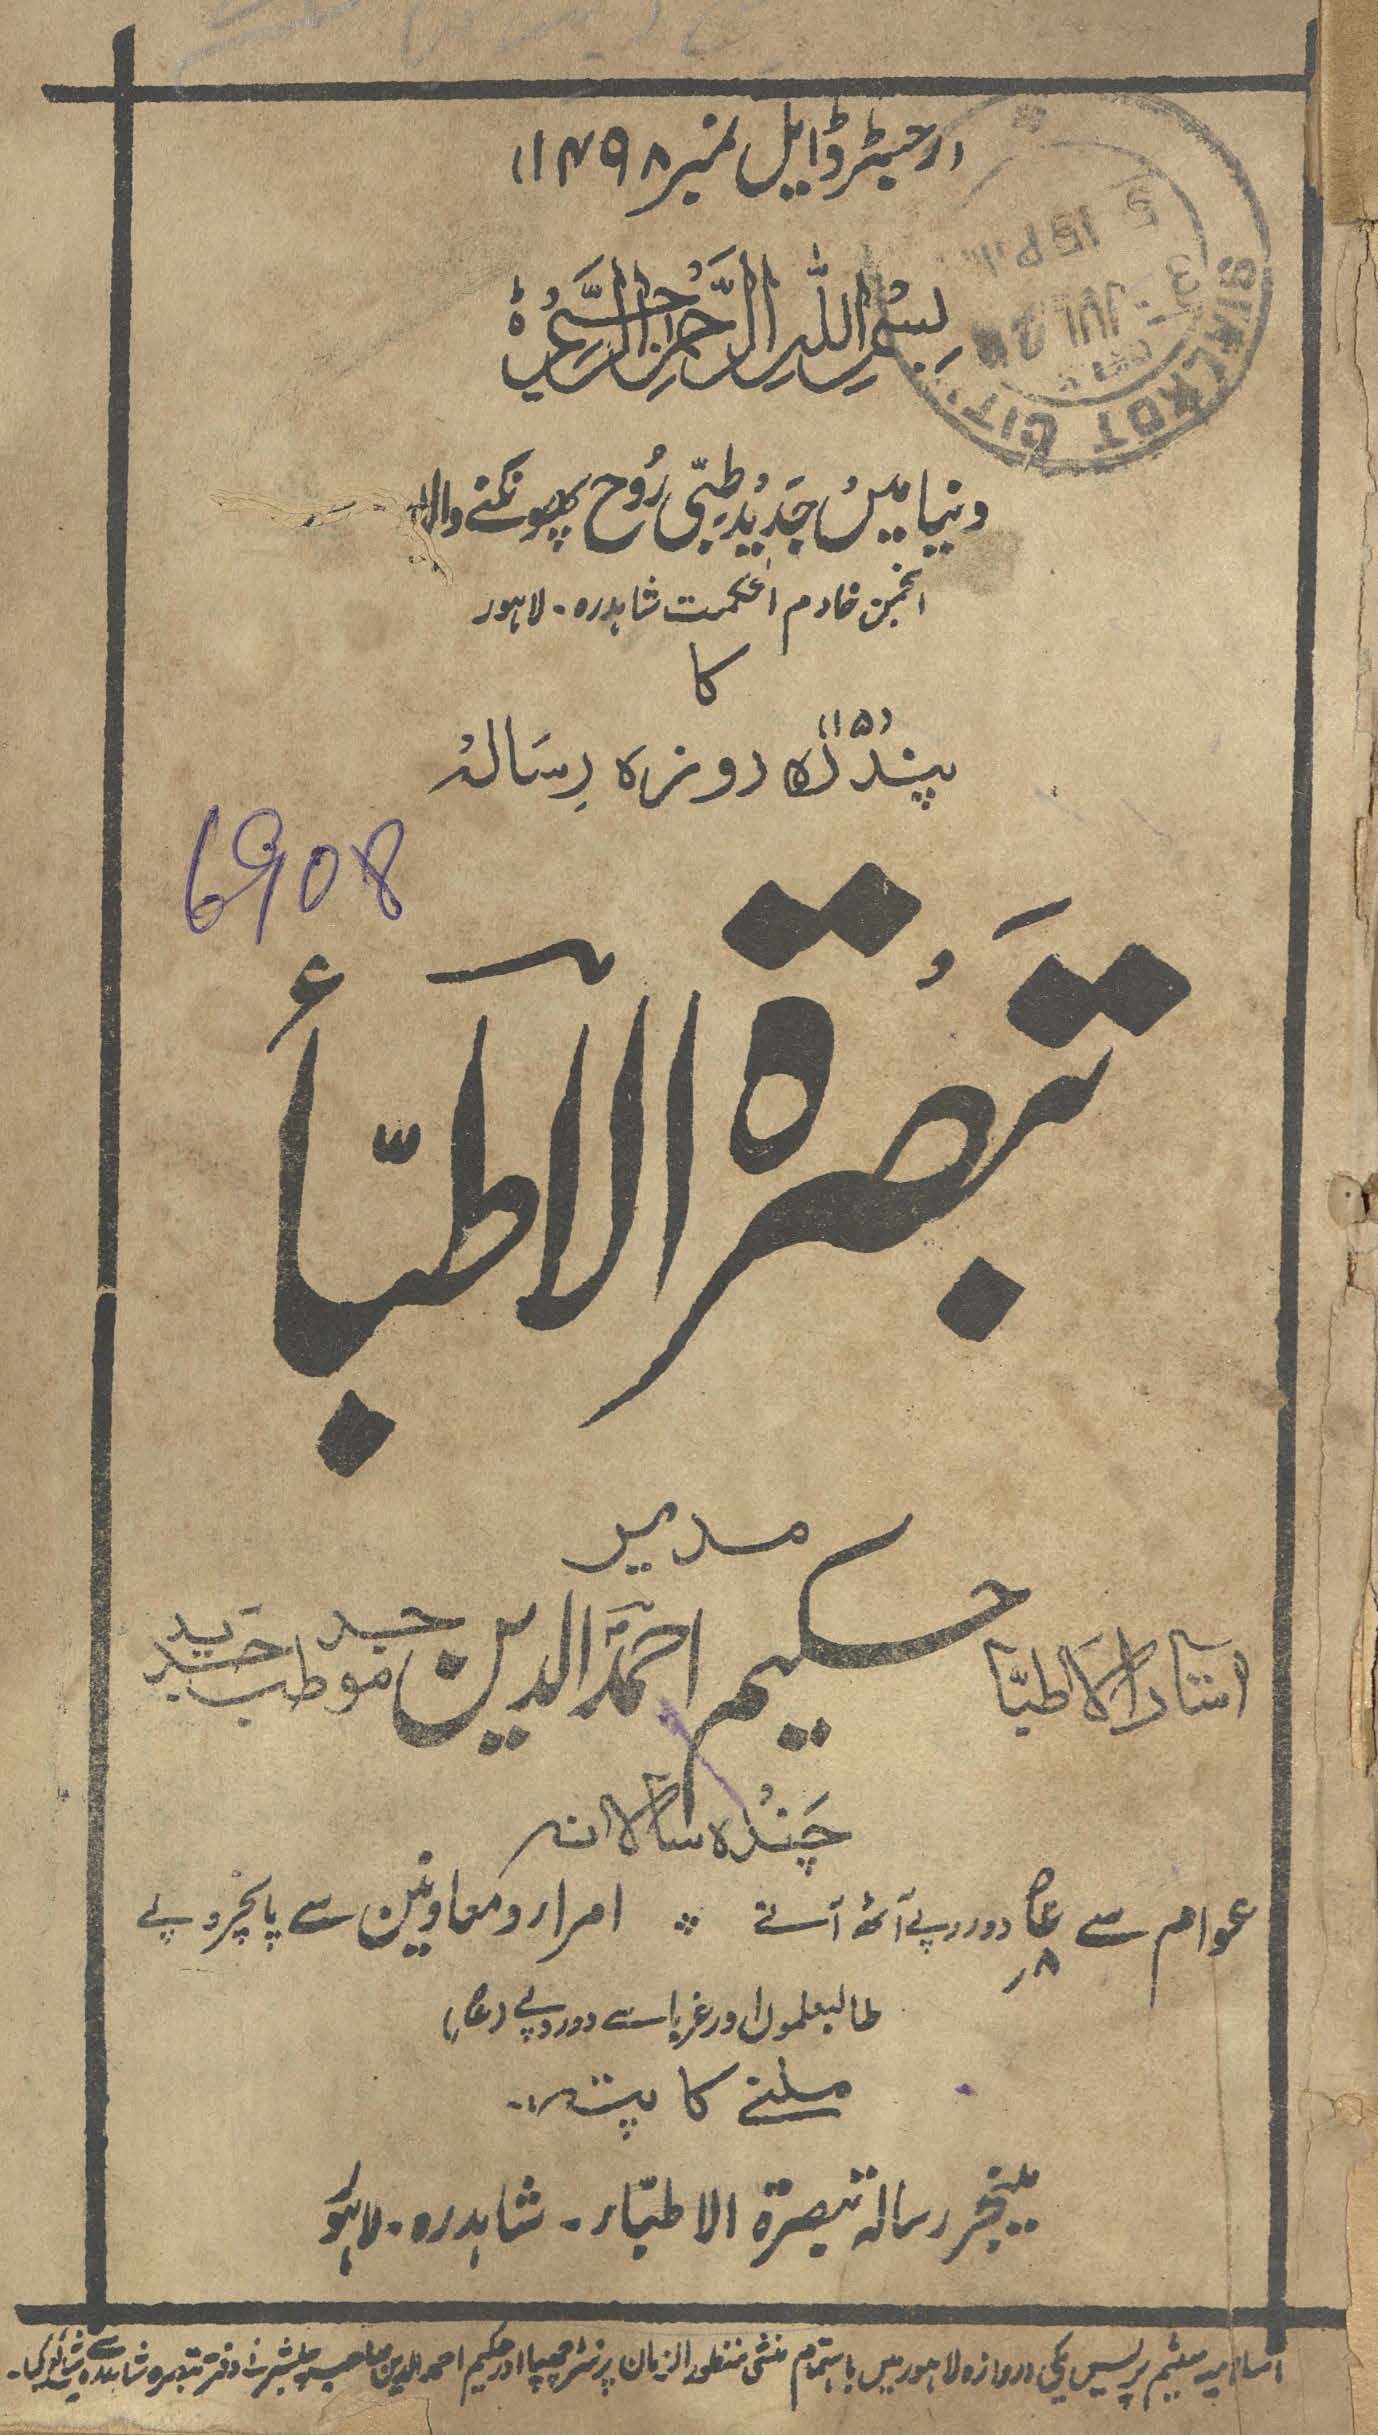 (رجسٹرڈ ایل نمبر ۱۴۹۸)
بِسْمِ اللّٰهِ الرَّحْمٰنِ الرَّحِيْمِ ۰
SIALKOT CITY
5 15 P.M
3 JUL 2
دنیا میں جدید طبی روح پھونکنے والا
انجمن خادم الحکمت شاہدرہ - لاہور
کا
پندرہ (۱۵) روزہ رسالہ
6908
تبصرۃ الاطباء
مدیر
استاد الاطبا حکیم احمد الدین موجد طب جدید
چندہ سالانہ
عوام سے دو روپے آٹھ آنے ۸ر امراء و معاونین سے پانچ روپے
طالبعلموں اور غربا سے دو روپے
ملنے کا پتہ:-
مینجر رسالہ تبصرۃ الاطباء - شاہدرہ - لاہور
سٹیم پریس یکی دروازہ لاہور میں باہتمام منشی منظور الزمان پرنٹر چھپا اور حکیم احمد الدین صاحب پبلشر نے دفتر تبصرہ شاہدرہ سے شائع کیا -